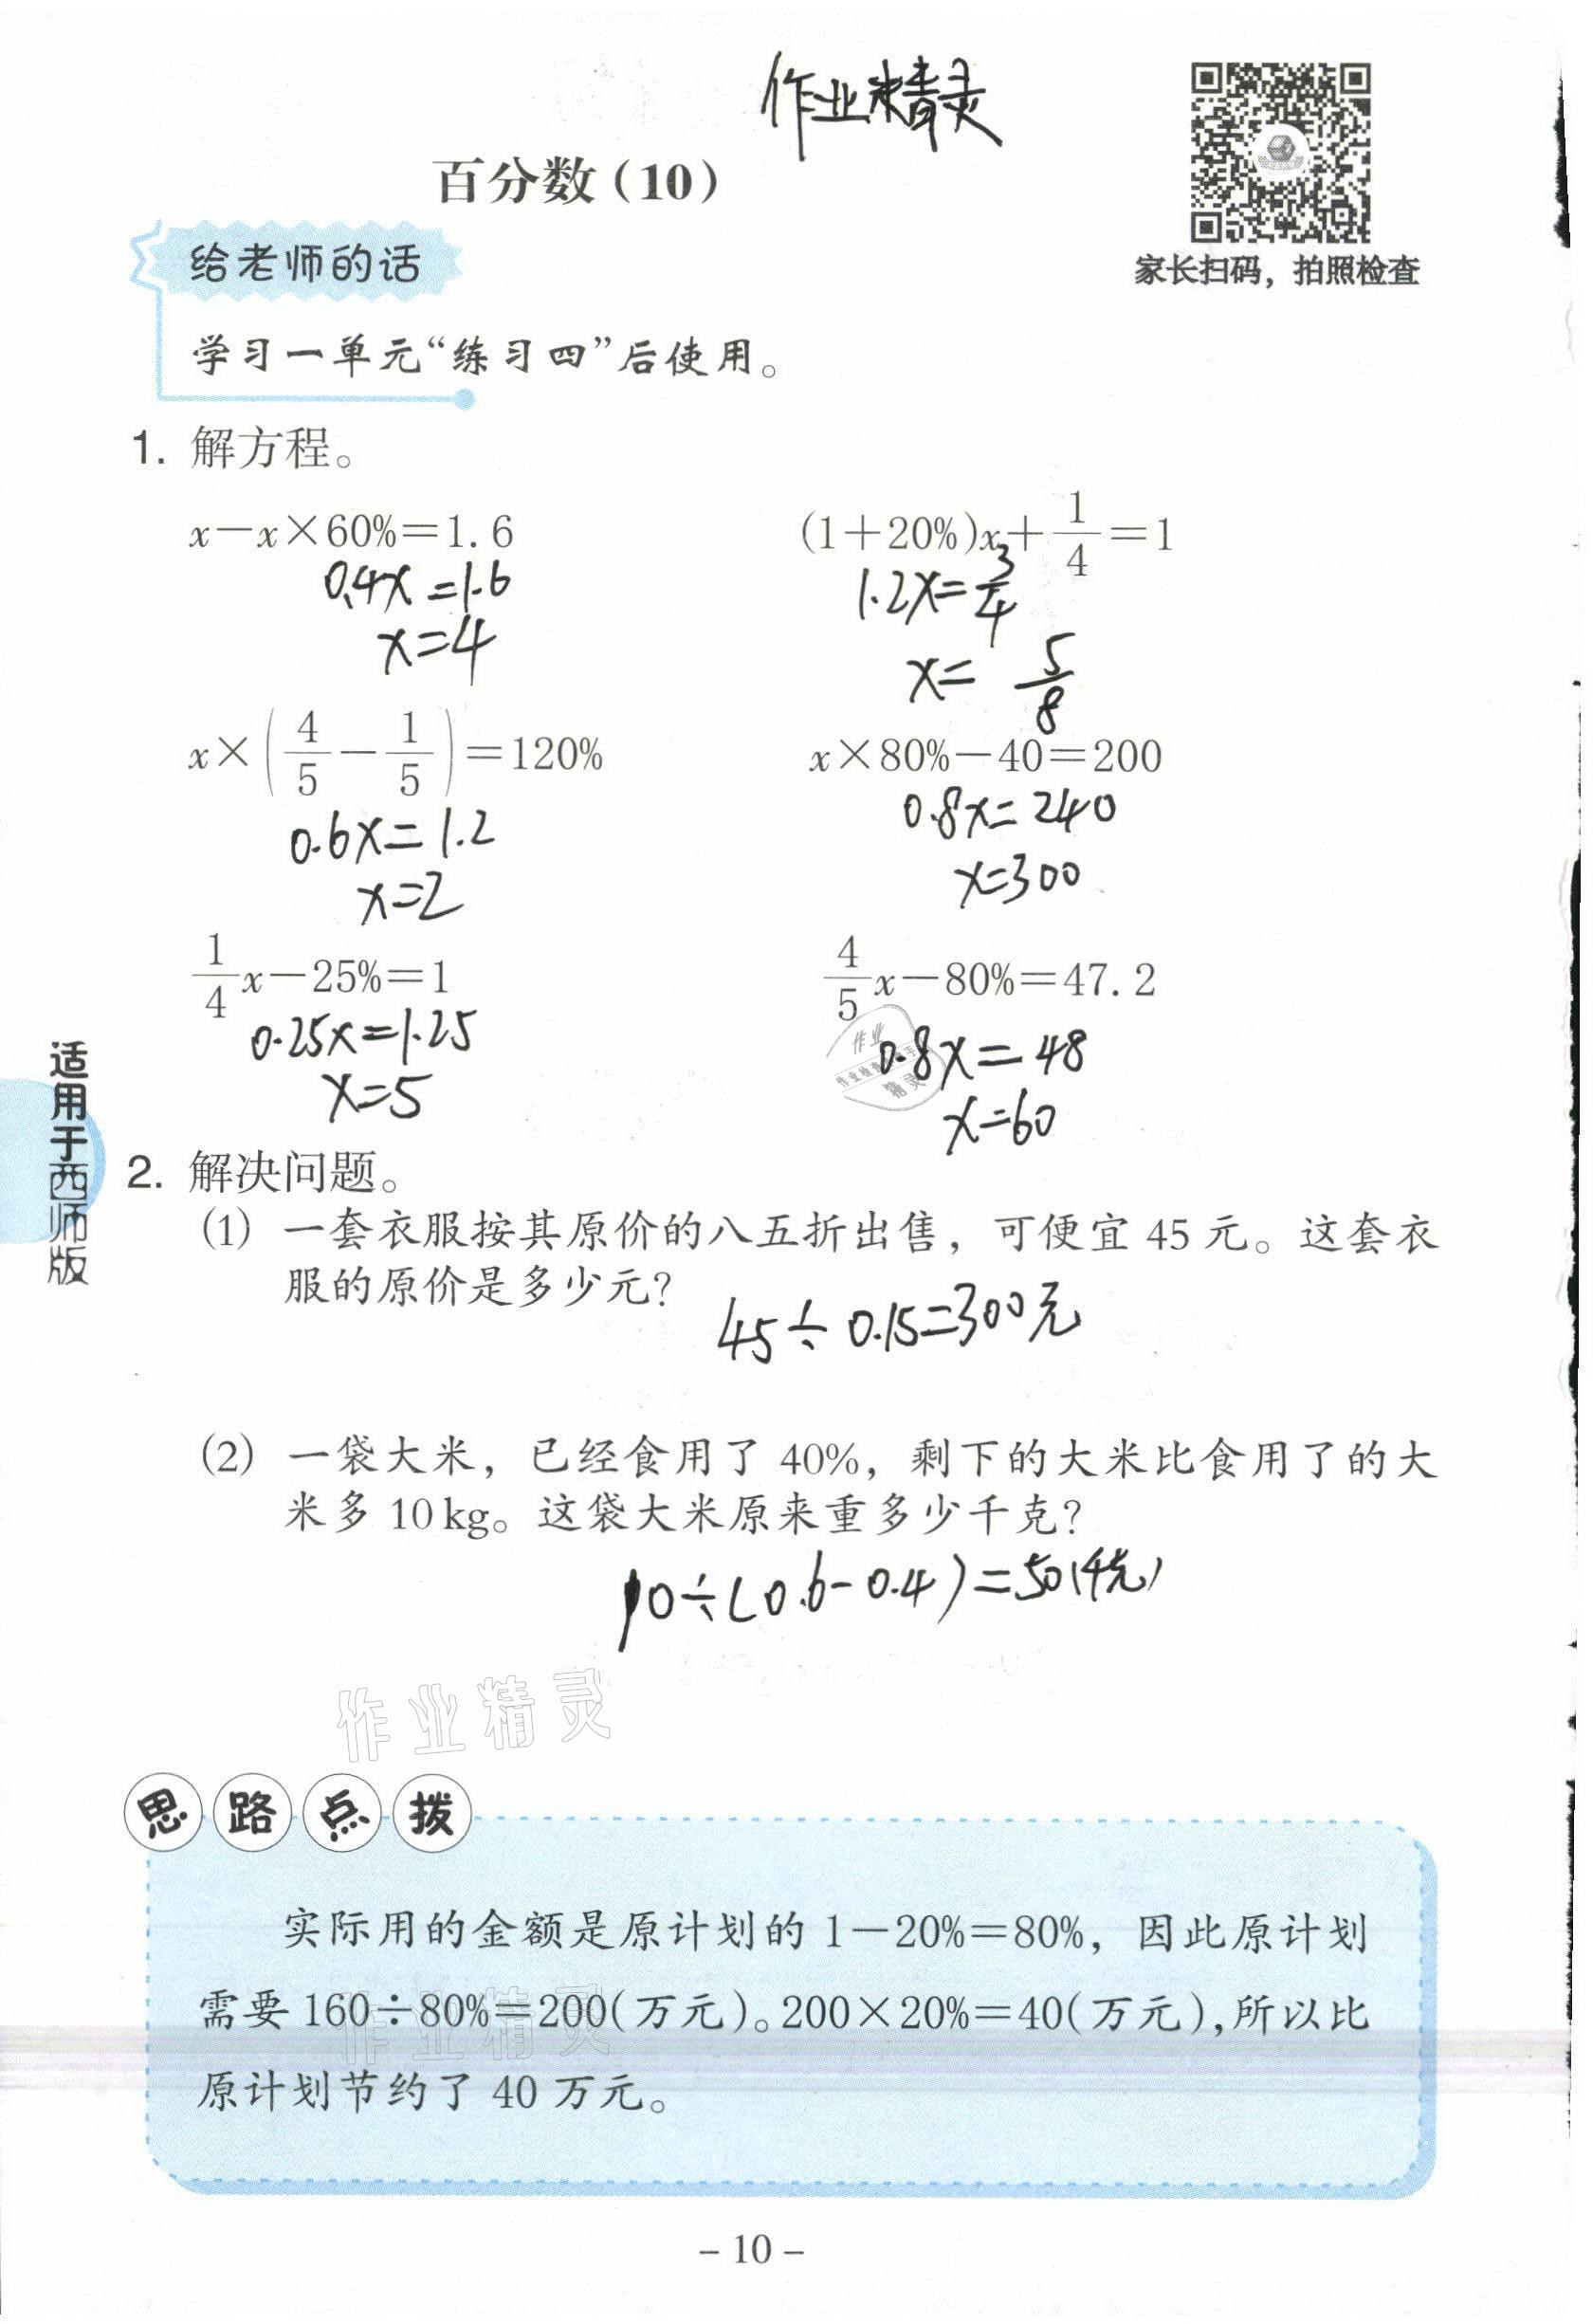 作业精灵
百分数(10)
家长扫码，拍照检查
给老师的话
学习一单元“练习四”后使用。
1. 解方程。
x－x×60%＝1.6
(1＋20%)x＋1/4＝1
0.4x＝1.6
1.2x＝3/4
x＝4
x＝5/8
x×(4/5－1/5)＝120%
x×80%－40＝200
0.6x＝1.2
0.8x＝240
x＝2
x＝300
1/4x－25%＝1
4/5x－80%＝47.2
0.25x＝1.25
0.8x＝48
x＝5
x＝60
适用于西师版
2. 解决问题。
(1) 一套衣服按其原价的八五折出售，可便宜45元。这套衣
服的原价是多少元?
45÷0.15＝300元
(2) 一袋大米，已经食用了40%，剩下的大米比食用了的大
米多10kg。这袋大米原来重多少千克?
10÷(0.6－0.4)＝50(千克)
作业精灵
思路点拨
实际用的金额是原计划的1－20%＝80%，因此原计划
需要160÷80%＝200(万元)。200×20%＝40(万元),所以比
作业精灵
原计划节约了40万元。
－10－